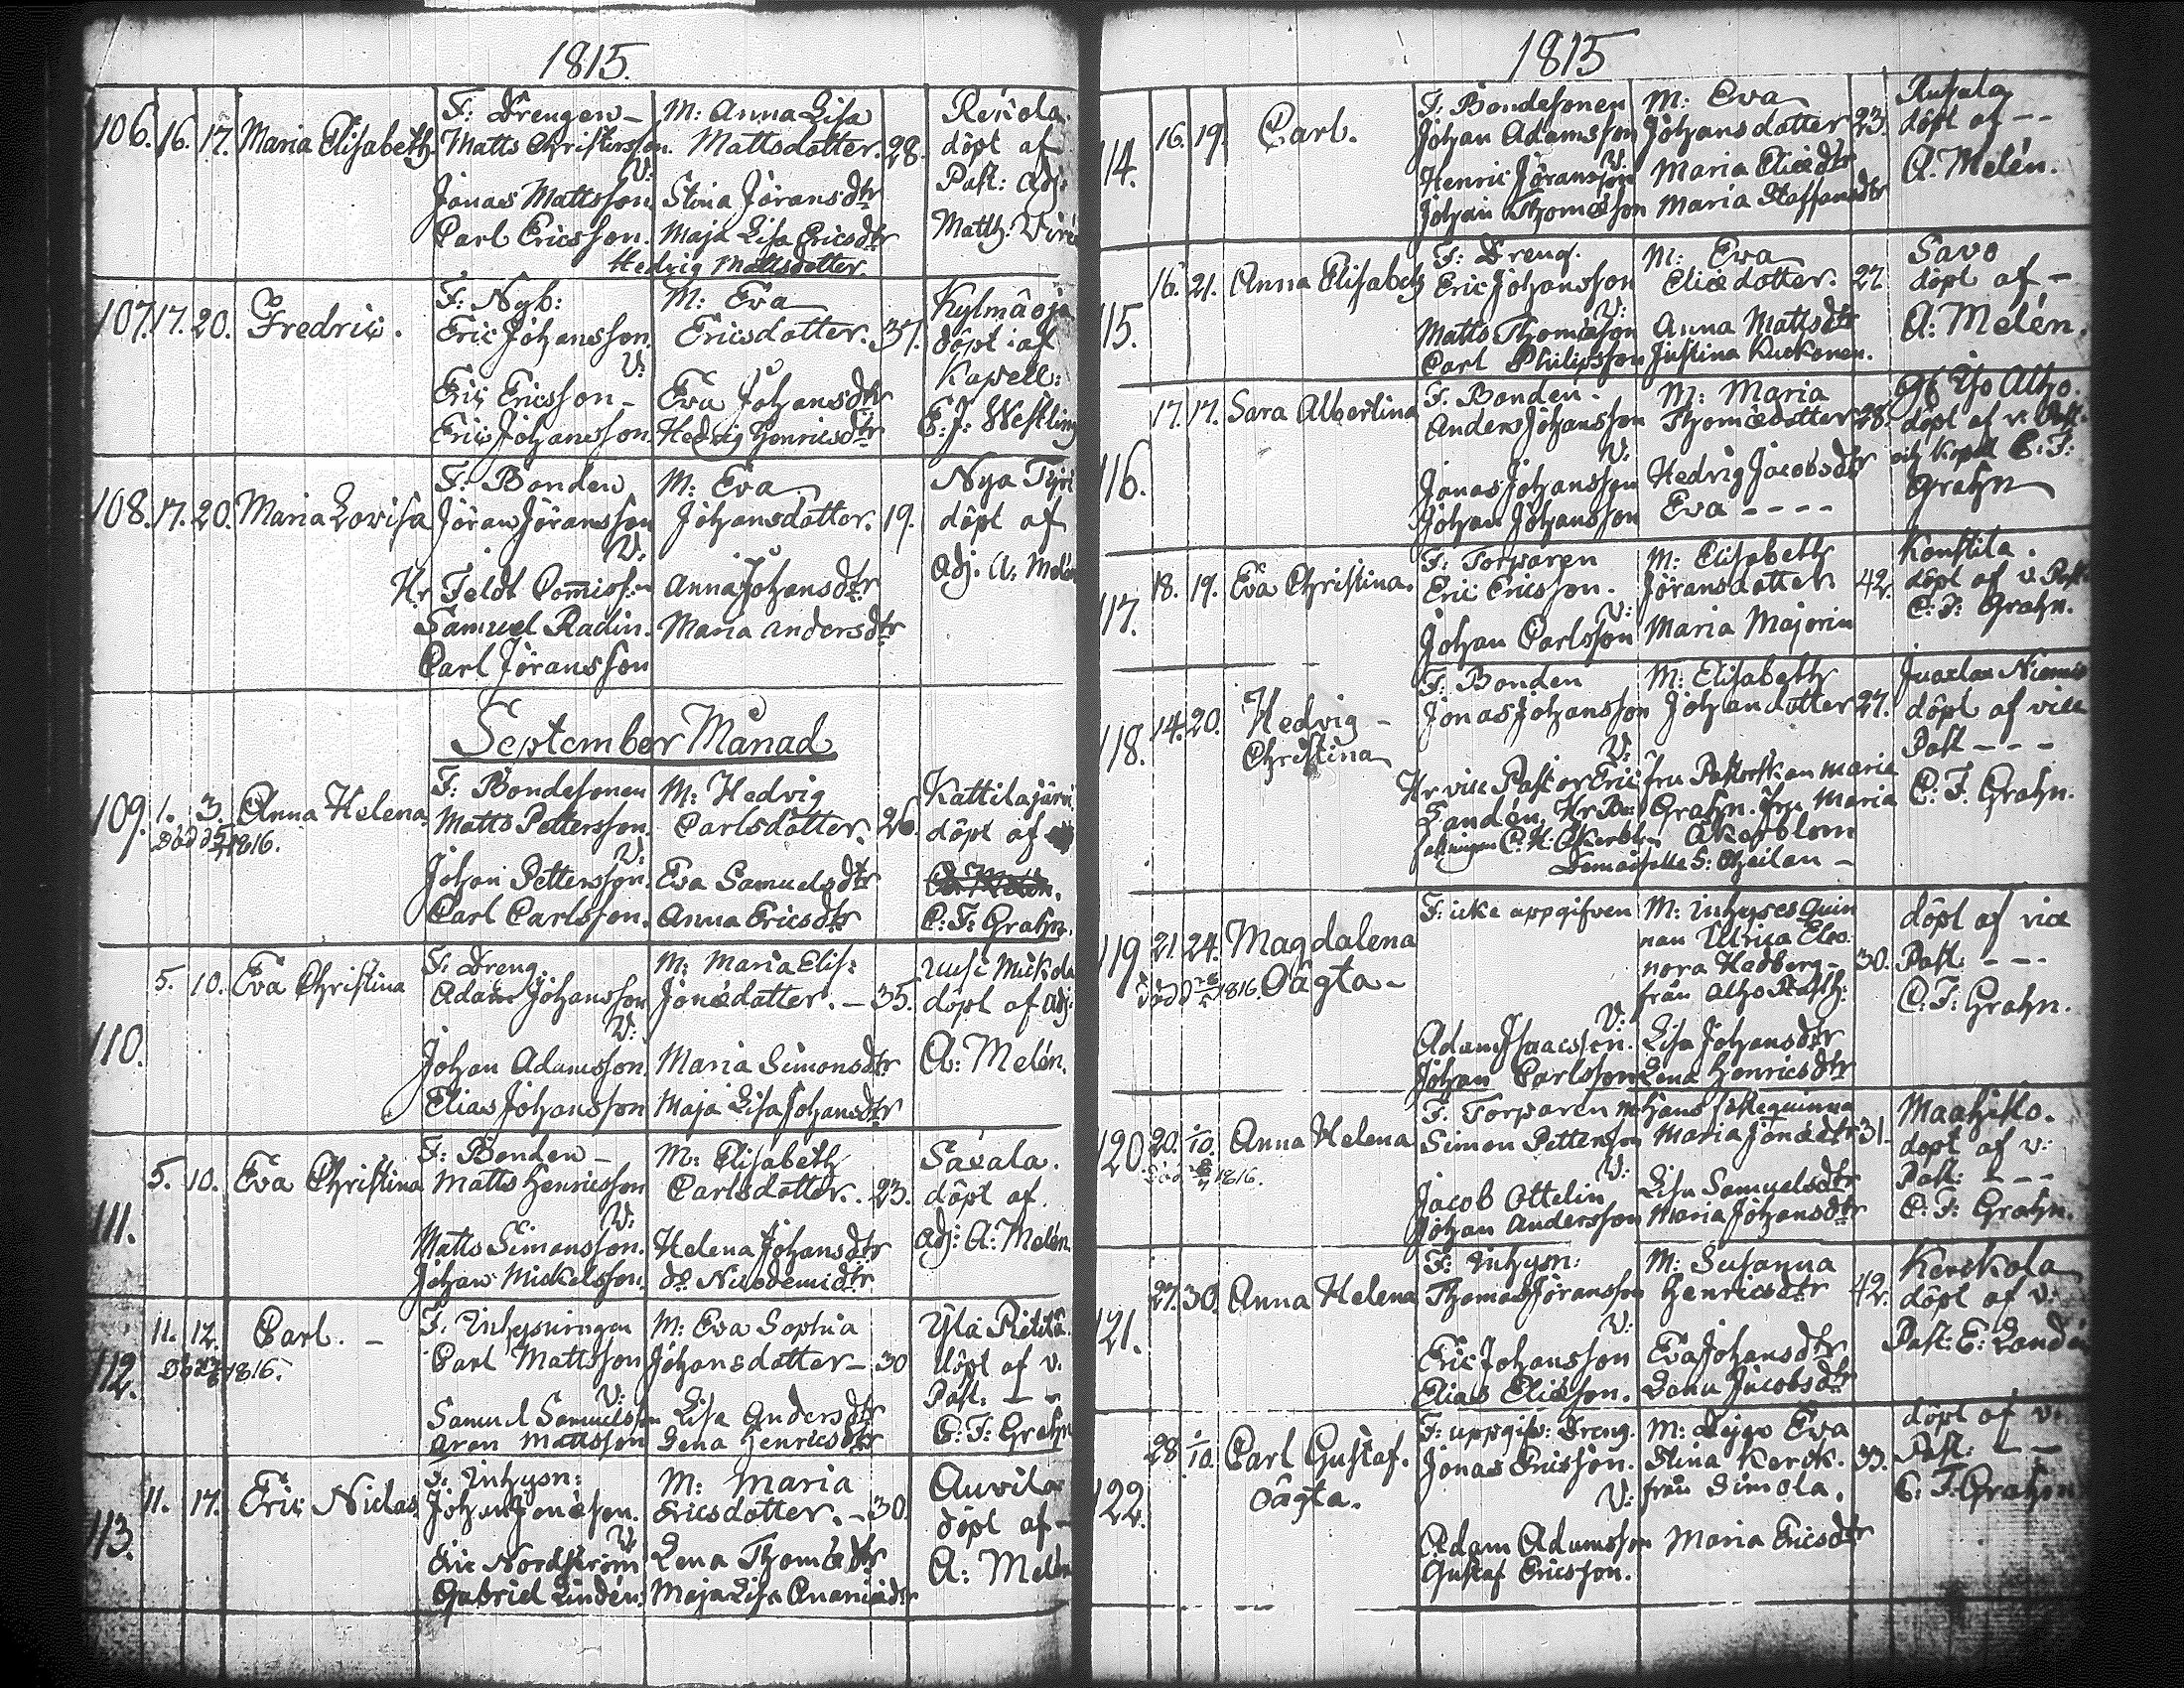 1815.
106. 16. 17. Maria Elisabeth F: Drengen M: Anna Lisa
Matts Christersson. Mattsdotter. 28. döpt af
V: Past: Adj:
Jonas Mattsson Stina Jöransdtr
Carl Ericsson. Maja Lisa Ericsdtr Matth:
Hedvig Mattsdotter
107. 17. 20. Fredric. F: Nyb: M: Eva
Eric Johansson. Ericsdotter. 37. döpt af
V: Kapell:
Eric Ericsson Eva Johansdtr
Eric Johansson. Hedvig Henricsdtr E: J: Westling
108. 17. 20. Maria Lovisa F: Bonden M: Eva Nya
Jöran Jöransson Johansdotter. 19. döpt af
V: Adj. A: Melén
Hr Feldt Com̄iss:n Anna Johansdtr
Samuel Radin. Maria Andersdtr
Carl Jöransson
September Månad
109. 1. 3. Anna Helena F: Bondesonen M: Hedvig Kattilajärvi
Matts Pettersson. Carlsdotter. 26. döpt af
Död 1816.
V:
Johan Pettersson. Eva Samuelsdtr
Carl Carlsson. Anna Ericsdtr C: F: Grahn.
110. 5. 10. Eva Christina F: Dreng. M: Maria Elis:
Adam Johansson Jonædotter. 35. döpt af Adj:
V:
Johan Adamsson. Maria Simonsdtr A: Melén.
Elias Johansson Maja Lisa Johansdtr
111. 5. 10. Eva Christina F: Bonden M: Elisabeth Savala.
Matts Henricsson Carlsdotter. 23. döpt af
V:
Matts Simonsson. Helena Johansdtr Adj: A: Melén
Johan Mickelsson. do Nicodemidtr
112. 11. 12. Carl. F: Inhysningen M: Eva Sophia Yli Pietilä.
Carl Mattsson Johansdotter 30 döpt af v.
Död 1816.
V: Past:
Samuel Samuelsson Lisa Andersdtr
Aron Mattsson Lena Henricsdtr C: F: Grahn
113. 11. 17. Eric Niclas F: Inhysn: M: Maria Anvila
Johan Jonæson. Ericsdotter. 30. döpt af
V:
Eric Nordström Lena Thomædtr A: Melén
Gabriel Lindén. Maja Lisa Ananiædtr
1815
114. 16. 19. Carl. F: Bondesonen M: Eva
Johan Adamsson Johansdotter 23. döpt af
V:
Henric Jöransson Maria Eliædtr A. Melén.
Johan Thomæson Maria Staffansdtr
115. 16. 21. Anna Elisabeth F: Dreng. M: Eva Savo
Eric Johansson Eliædotter. 27. döpt af
V:
Matts Thomæson Anna Mattsdtr A: Melén.
Carl Philipsson Justina Kuckonen.
116. 17. 17. Sara Albertina F. Bonden. M: Maria
Anders Johansson Thomædotter 28. döpt af v. Past.
V: och Kapell C: F:
Jonas Johansson Hedvig Jacobsdtr Grahn
Johan Johansson Eva - - - -
117. 18. 19. Eva Christina. F: Torparen M: Elisabeth Konttila.
Eric Ericsson. Jöransdotter. 42. döpt af v. Past.
V: C: F: Grahn.
Johan Carlsson Maria Majorin
118. 14. 20. Hedvig F: Bonden M: Elisabeth
Christina Jonas Johansson Johandotter 27. döpt af vice
V: Past - - -
Hr vice Pastor Eric fru Pastorskan Maria
Sandén, Hr Grahn. fru Maria C. F. Grahn.
C: H: Åkerblom Åkerblom
Demoiselle S:
119. 21. 24. Magdalena F: icke uppgifven M: Inhyses Quin döpt af vice
nan Ulrica Eleo
Oägta nora Hedberg 30. Past. - - -
Död 1816. från
V: C: F: Grahn.
Adam Isaacsson. Lisa Johansdtr
Johan Carlsson Lena Henricsdtr
120. 20. 1/10. Anna Helena F. Torparen M: Hans
Simon Pettersson Maria Jonædtr 31. döpt af v:
Död 1816. V: Past: - - -
Jacob Ottelin Lisa Samuelsdtr C: F: Grahn.
Johan Andersson Maria Johansdtr
121. 27. 30. Anna Helena F: Inhysn: M: Susanna Kerckola
Thomas Jöransson Henricsdtr 42. döpt af v.
V:
Eric Johansson Eva Johansdtr Past: E: Sandén
Elias Eliæson. Lena Jacobsdtr
122. 28. 1/10 Carl Gustaf. F: uppgifv: Dreng. M: Eva döpt af v.
Jonas Ericsson. Stina Kerck. 33. Past:
Oägta. V: från Simola. C. F. Grahn
Adam Adamsson Maria Ericsdtr
Gustaf Ericsson.